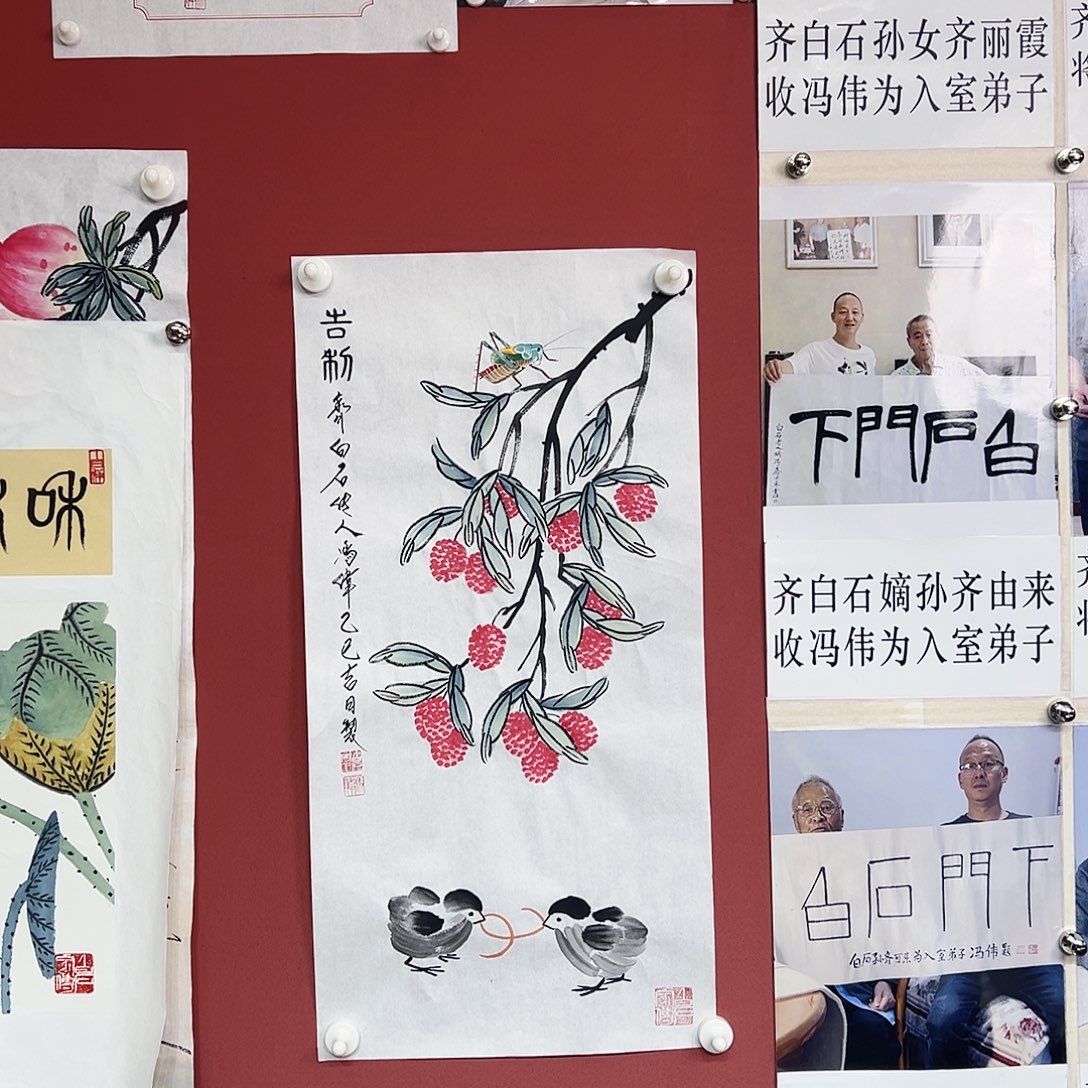 吉利
齊白石传人馮偉乙巳吉日製
和
齐白石孙女齐丽霞
收冯伟为入室弟子
白石門下
齐白石嫡孙齐由来
收冯伟为入室弟子
白石門下
为入室弟子冯伟